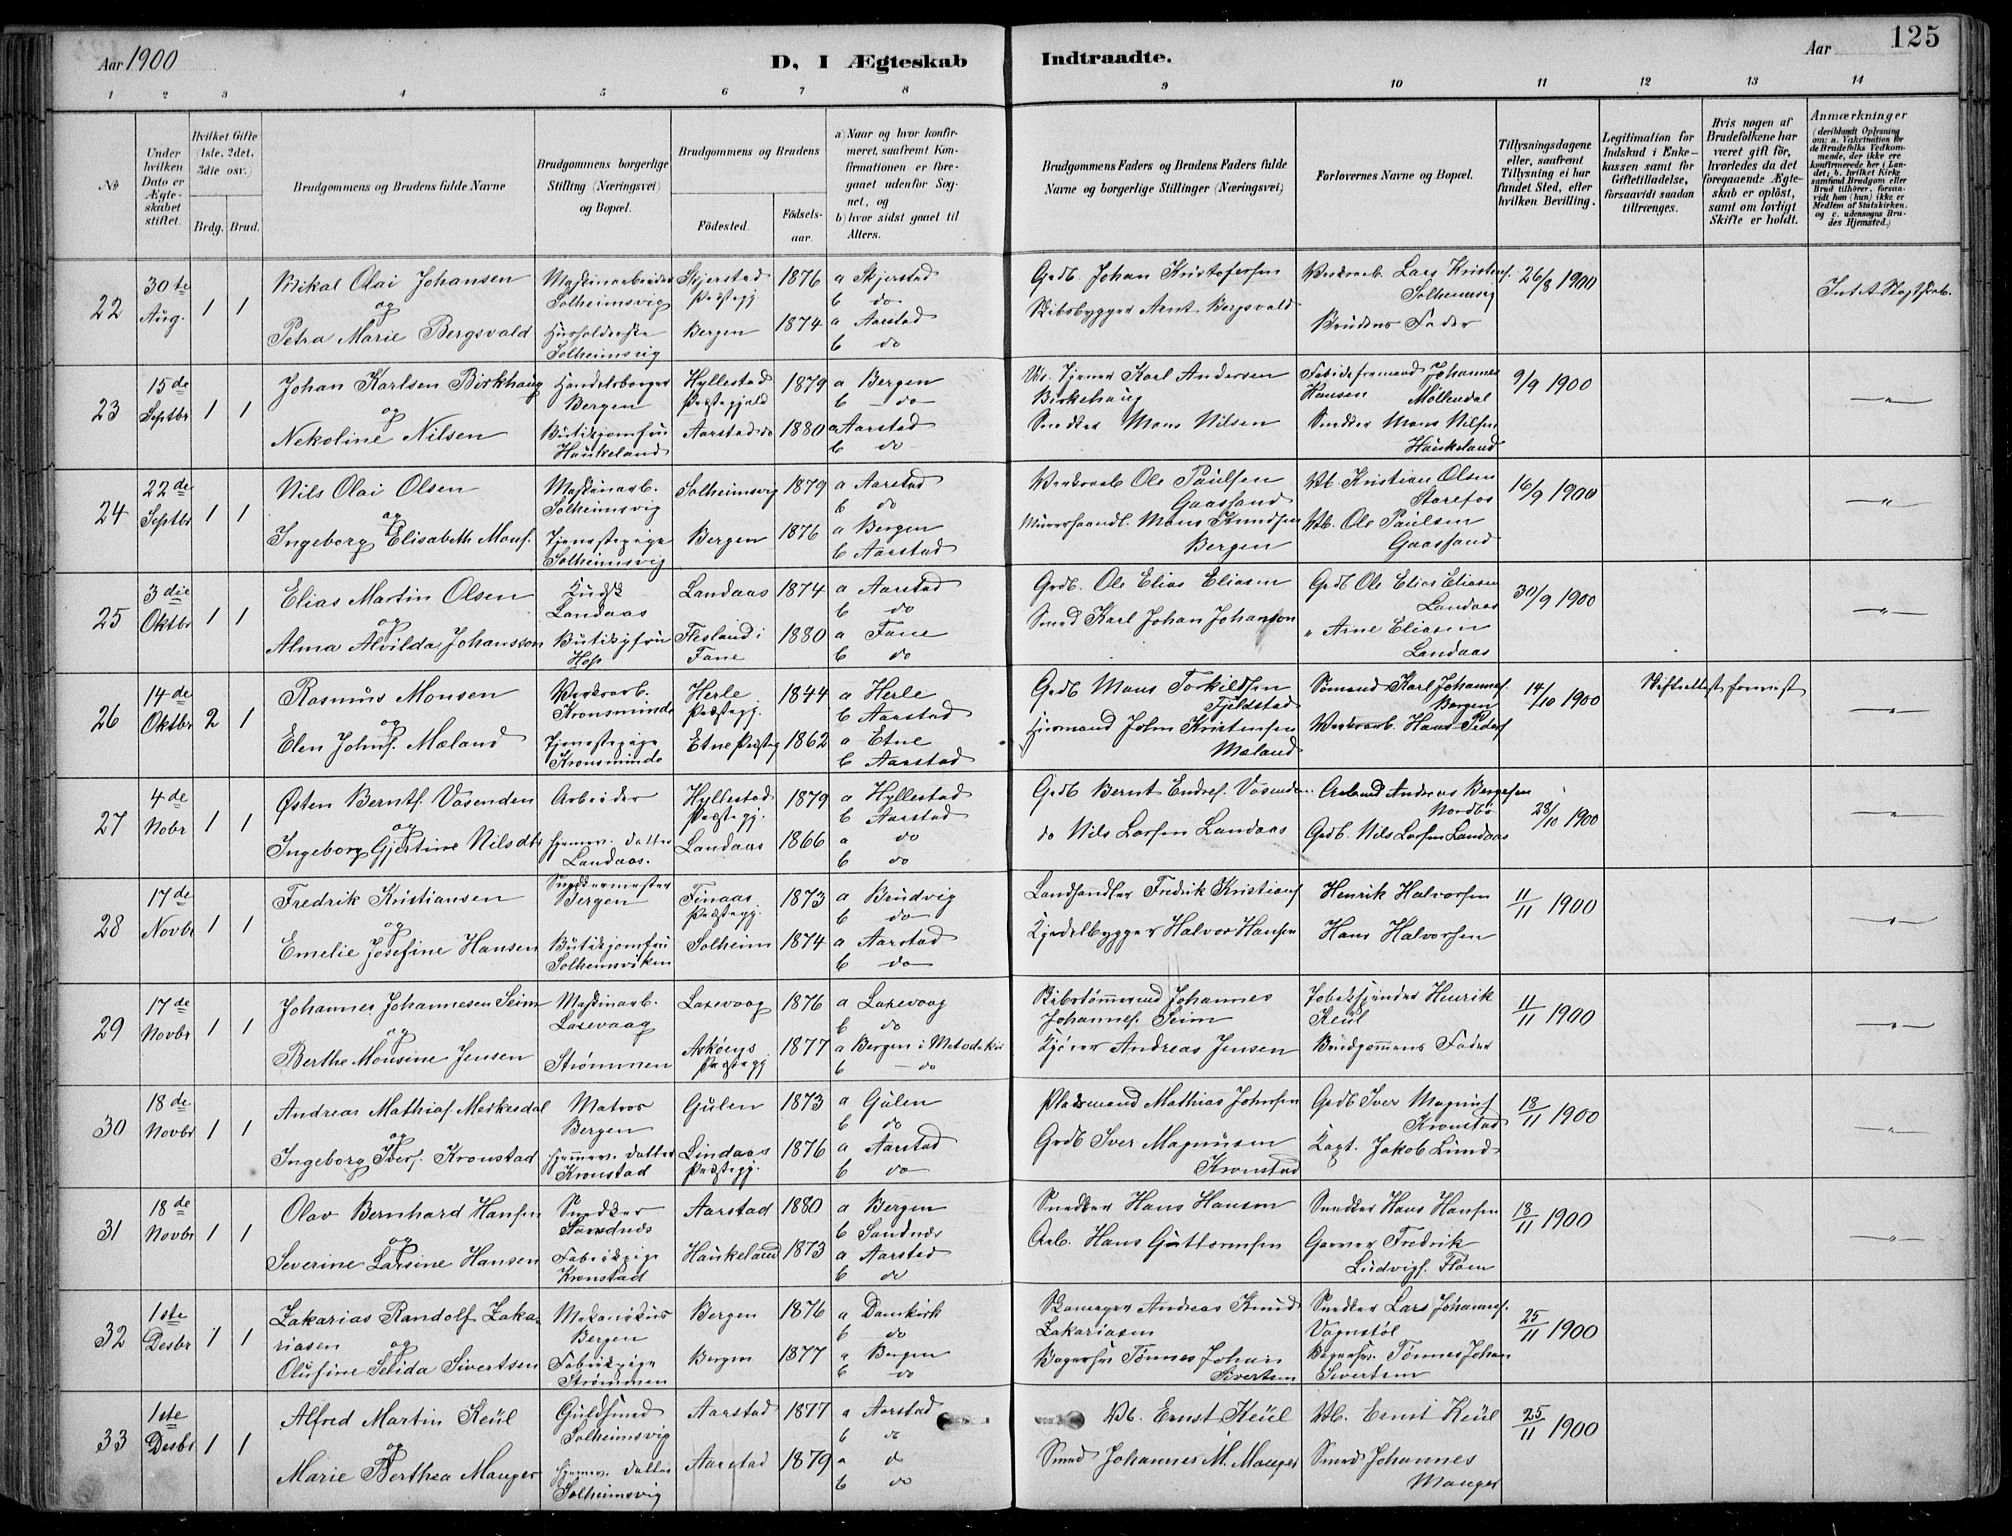 Aar 1900
D. I Ægteskab Indtraadte.
Aar 125
1 2 3 4 5 6 7 8 9 10 11 12 13 14
No
Under hvilken Dato er Ægteskabet stiftet.
Hvilket Gifte (1ste, 2det, 3dte osv.)
Brdg. Brud.
Brudgommens og Brudens fulde Navne
Brudgommens borgerlige Stilling (Næringsvei) og Bopæl.
Brudgommens og Brudens
Födested. Födselsaar.
a) Naar og hvor konfirmeret, saafremt Konfirmationen er foregaaet udenfor Sognet, og
b) hvor sidst gaaet til Alters.
Brudgommens Faders og Brudens Faders fulde Navne og borgerlige Stillinger (Næringsvei)
Forlovernes Navne og Bopæl.
Tillysningsdagene eller, saafremt Tillysning ei har fundet Sted, efter hvilken Bevilling.
Legitimation for Indskud i Enkekassen samt for Giftetilladelse, forsaavidt saadan tiltrænges.
Hvis nogen af Brudefolkene har været gift för, hvorledes da det foregaaende Ægteskab er oplöst, samt om lovligt Skifte er holdt.
Anmærkninger (deriblandt Oplysning om: a. Vakcination for de Brudefolks Vedkommende, der ikke ere konfirmerede her i Landet; b. hvilket Kirkesamfund Brudgom eller Brud tilhörer, forsaavidt han (hun) ikke er Medlem af Statskirken, og c. udensogns Brudes Hjemsted.)
22 30te Aug. 1 1 Mikal Olai Johansen Maskinarbeider Solheimsvig Skjerstad Præstegj 1876 a Skjerstad b do Grdb. Johan Kristofersen Værksarb. Lars Kristens. Solheimsvig 26/8 1900
og
Petra Marie Bergsvald Husholderske Solheimsvig Bergen 1874 a Aarstad b do Skibsbygger Arnt Bergsvald Brudens Fader
23 15de Septbr 1 1 Johan Karlsen Birkhaug Handelsborger Bergen Hyllestad Præstegjæld 1879 a Bergen b do Tjener Karl Andersen Birkehaug Johannes Hansen Møllendal 9/9 1900 "
og
Nekoline Nilsen Butikjomfru Haukeland Aarstad do 1880 a Aarstad b do Snedker Mons Nilsen Snedker Mons Nilsen Haukeland
24 22de Septbr 1 1 Nils Olai Olsen Maskinarb. Solheimsvig Solheimsvig 1879 a Aarstad b do Værksarb Ole Paulsen Gaassand Vb. Kristian Olsen Starefos 16/9 1900 "
og
Ingeborg Elisabeth Mons. Tjenestepige Solheimsvig Bergen 1876 a Bergen b Aarstad Murerhaandl. Mons Knudsen Bergen Vb. Ole Paulsen Gaassand
25 3die Oktbr 1 1 Elias Martin Olsen Kudsk Landaas Landaas 1874 a Aarstad b do Grdb. Ole Elias Eliasen Grdb Ole Elias Eliasen Landaas 30/9 1900 "
og
Alma Alvilda Johansson Butikjfru Hop Flesland i Fane 1880 a Fane b do Smed Karl Johan Johanson " Arne Eliasen Landaas
26 14de Oktbr 2 1 Rasmus Monsen Værksarb. Kronsminde Herle Præstegj. 1844 a Herle b Aarstad Grdb Mons Torkildsen Fjeldstad Sømand Karl Johannes. Bergen 14/10 1900 Skifteattest forevist "
og
Elen Johns. Mæland Tjenestepige Kronsminde Etne Præsteg 1862 a Etne b Aarstad Husmand John Kristensen Mæland Værksarb. Hans Peders
27 4de Nobr 1 1 Østen Bernts. Vasenden Arbeider Hyllestad Præstegj. 1879 a Hyllestad b Aarstad Grdb Bernt Endres. Vasenden Andreas Bergesen Nordbø 28/10 1900
og
Ingeborg Gjertine Nilsdtr hjemmev. Datter Landaas. Landaas 1866 a do b do do Nils Larsen Landaas Grdb. Nils Larsen Landaas
28 17de Novbr 1 1 Fredrik Kristiansen Snedkermester Bergen Finaas Præstegj. 1873 a Brudvig b do Landhandler Fredrik Kristians Henrik Halvorsen 11/11 1900 "
og
Emelie Josefine Hansen Butikjomfru Solheimsviken Solheim 1874 a Aarstad b do Kjedelbygger Halvor Hansen Hans Halvorsen
29 17de Novbr 1 1 Johannes Johannesen Seim Maskinarb. Laxevaag Laxevaag 1876 a Laxevaag b do Skibstømmermd Johannes Johannes. Seim Henrik Keül 11/11 1900 "
og
Berthe Monsine Jensen Strømmen Askøens Præstegj 1877 a Bergen i Metodekir b do Kjører Andreas Jensen Brudgommens Fader
30 18de Novbr 1 1 Andreas Mathias. Merkesdal Matros Bergen Gulen 1873 a Gulen b do Pladsmand Mathias Johnsen Grdb Iver Magnus Kronstad 18/11 1900 "
og
Ingeborg Ivers. Kronstad hjemmev. Datter Kronstad Lindaas Præstegj. 1876 a Aarstad b do Grdb Iver Magnusen Kronstad Kapt. Jakob Lund
31 18de Novbr 1 1 Olav Bernhard Hansen Snedker Sandnes Aarstad 1880 a Bergen b Sandnes Snedker Hans Hansen Snedker Hans Hansen 18/11 1900 "
og
Severine Larsine Hansen Fabrikpige Kronstad Haukeland 1873 a Aarstad b do Arb. Hans Guttormsen Garver Fredrik Ludvigs. Fløen
32 1ste Desbr 1 1 Zakarias Randolf Zakariasen Mekanikus Bergen Bergen 1876 a Domkirk b do Skomager Andreas Knud Zakariasen Snedker Lars Johannes. Vognstøl 25/11 1900
og
Olufine Selida Sivertsen Fabrikpige Strømmen Bergen 1877 a Bergen b do Bagersv Tønnes Johan Sivertsen Bagersv. Tønnes Johan Sivertsen
33 1ste Desbr 1 1 Alfred Martin Keül Guldsmed Solheimsvig Aarstad 1877 a Aarstad b do Vb. Ernst Keül Vb. Ernst Keül 25/11 1900
og
Marie Berthea Manger hjemmev. Datter Solheimsvig Aarstad 1879 a do b do Smed Johannes M. Manger Smed Johannes Manger